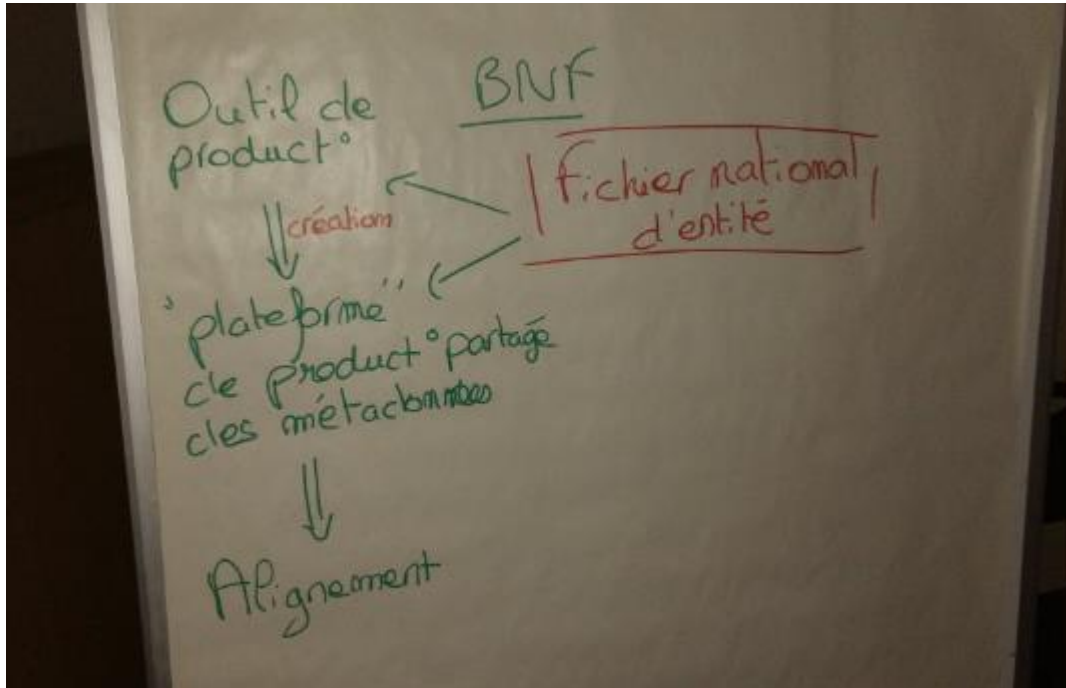 BNF
Outil de
product°
création
fichier national
d'entité
"plateforme"
de product° partagé
des métadonnées
Alignement